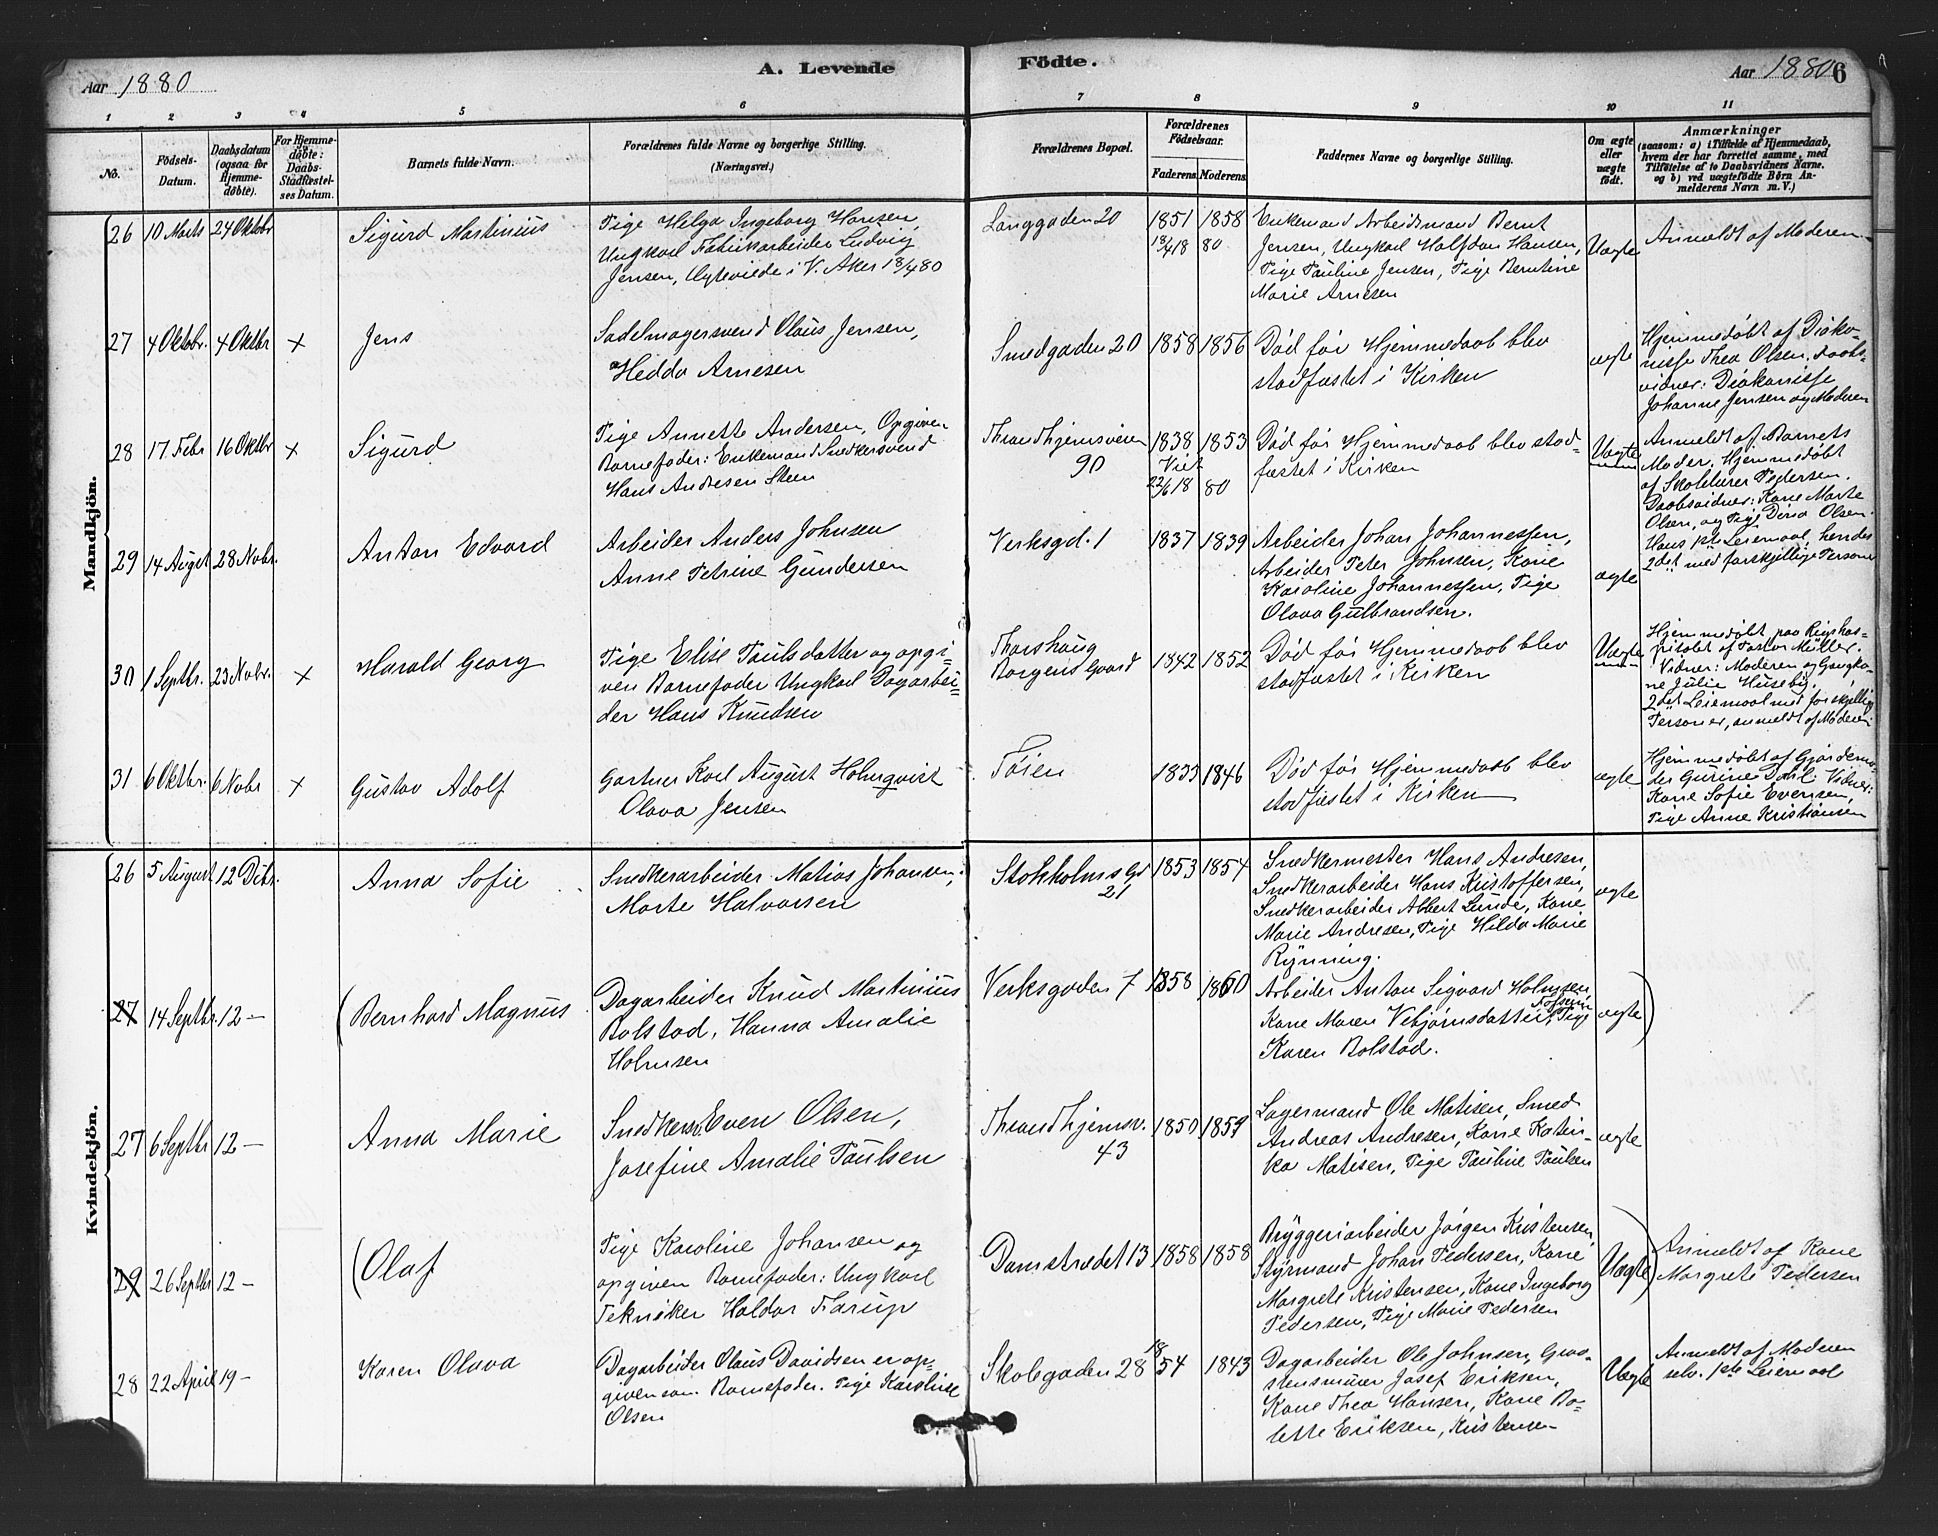 Aar 1880
A. Levende Födte.
Aar 1880 6
1 2 3 4 5 6 7 8 9 10 11
No.
Födsels-Datum.
Daabsdatum (ogsaa for Hjemme-döbte).
For Hjemme-döbte: Daabs-Stadfæstel-ses Datum.
Barnets fulde Navn.
Forældrenes fulde Navne og borgerlige Stilling.
(Næringsvei.)
Forældrenes Bopæl.
Forældrenes Födselsaar.
Faderens. Moderens.
Faddernes Navne og borgerlige Stilling.
Om ægte eller uægte födt.
Anmærkninger
(saasom: a) i Tilfælde af Hjemmedaab,
hvem der har forrettet samme, med
Tilföielse af to Daabsvidners Navne.
og b) ved uægtefödte Börn An-
melderens Navn m. V.)
Mandkjön.
26 10 Marts 24 Oktobr Sigurd Martinius
Pige Helga Ingeborg Hansen,
Ungkarl Fabrikarbeider Ludvig
Jensen, Ægteviede i V. Aker 18/4 80
Langgaden 20
1851 1858
18/4 18 80
Enkemand Arbeidsmand Bernt
Jensen, Ungkarl Halfdan Hansen,
Pige Pauline Jensen, Pige Berntine
Marie Arnesen
Uægte
Anmeldt af Moderen
27 4 Oktobr. 4 Oktbr x Jens
Sadelmagersvend Olaus Jensen,
Hedda Arnesen
Smedgaden 20 1858 1856
Død før Hjemmedaab blev
stadfæstet i Kirken
ægte
Hjemmedøbt af Diako-
nisse Thea Olsen. Daabs-
vidner: Diakonisse
Johanne Jensen og Moderen
28 17 Febr 16 Oktbr x Sigurd
Pige Annette Andersen, Opgiven
Barnefader: Enkemand Snedkersvend
Hans Andresen Steen
Throndhjemsveien
90
1838 1853
Viet
22/6 18 80
Død før Hjemmedaab blev stad-
fæstet i Kirken
Uægte
Anmeldt af Barnets
Moder. Hjemmedøbt
af Skolelærer Pedersen.
Daabsvidner: Kone Marte
Olsen, og Pige Dina Olsen.
Hans 1ste Leiermaal, hendes
2det med forskjellige Personer
29 14 Augst 28 Novbr. Anton Edvard
Arbeider Anders Johnsen
Anne Petrine Gundersen
Verksgd. 1 1837 1839
Arbeider Johan Johannessen,
Arbeider Peter Johnsen, Kone
Karoline Johannessen, Pige
Olava Gulbrandsen.
ægte
30 1 Septbr. 23 Novbr. x Harald Georg
Pige Elise Paulsdatter og opgi-
ven Barnefader Ungkarl Dagarbei-
der Hans Knudsen
Thorshaug
Borgens Gaard
1842 1852
Død før Hjemmedaab blev
stadfæstet i Kirken
Uægte
Hjemmedøbt paa Rigshos-
pitalet af Pastor Müller.
Vidner: Moderen og Gangko-
ne Julie Huseby.
2det Leiermaal med forskjellige
Personer, anmeldt af Moderen
31 6 Oktbr. 6 Novbr x Gustav Adolf
Gartner Karl August Holmqvist
Olava Jensen
Tøien 1833 1846
Død før Hjemmedaab blev
stadfæstet i Kirken
ægte
Hjemmedøbt af Gjordemo-
der Gurine Dahl. Vidner:
Kone Sofie Evensen,
Pige Anne Kristiansen
Kvindekjön.
26 5 August 12 Decbr. Anna Sofie
Snedkerarbeider Matias Johansen,
Marte Halvorsen
Stokholms Gd
21
1853 1854
Snedkermester Hans Andresen,
Snedkerarbeider Hans Kristoffersen,
Snedkerarbeider Albert Lunde, Kone
Marie Andresen, Pige Hilda Marie
Rynning.
ægte
27 14 Septbr. 12 — (Bernhard Magnus
Dagarbeider Knud Martinius
Bolstad, Hanna Amalie
Holmsen
Verksgaden 7 1858 1860
Arbeider Anton Sigvard Holmsen,
Kone Maren Vebjørnsdatter, Pige
Karen Bolstad.
ægte)
27 6 Septbr 12 — Anna Marie
Snedkersv. Even Olsen,
Josefine Amalie Paulsen
Throndhjemsv.
43
1850 1859
Lagermand Ole Matisen, Smed
Andreas Andresen, Kone Katin-
ka Matisen, Pige Pauline Paulsen
ægte
29 26 Septbr 12 — (Olaf
Pige Karoline Johansen og
opgiven Barnefader: Ungkarl
Tekniker Haldor Farup
Damstrædet 13 1858 1858
Bryggeriarbeider Jørgen Kristensen,
Styrmand Johan Pedersen, Kone
Margrete Kristensen, Kone Ingeborg
Pedersen, Pige Marie Pedersen
Uægte)
Anmeldt af Kone
Margrete Pedersen
28 22 April 19 — Karen Olava
Dagarbeider Olaus Davidsen er op-
given som Barnefader. Pige Karoline
Olsen
Skolegaden 28 1854 1843
Dagarbeider Ole Johnsen, Graa-
stensmurer Josef Eriksen,
Kone Thea Hansen, Kone Bo-
lette Eriksen, Kristensen
Uægte
Anmeldt af Moderen
selv. 1ste Leiermaal